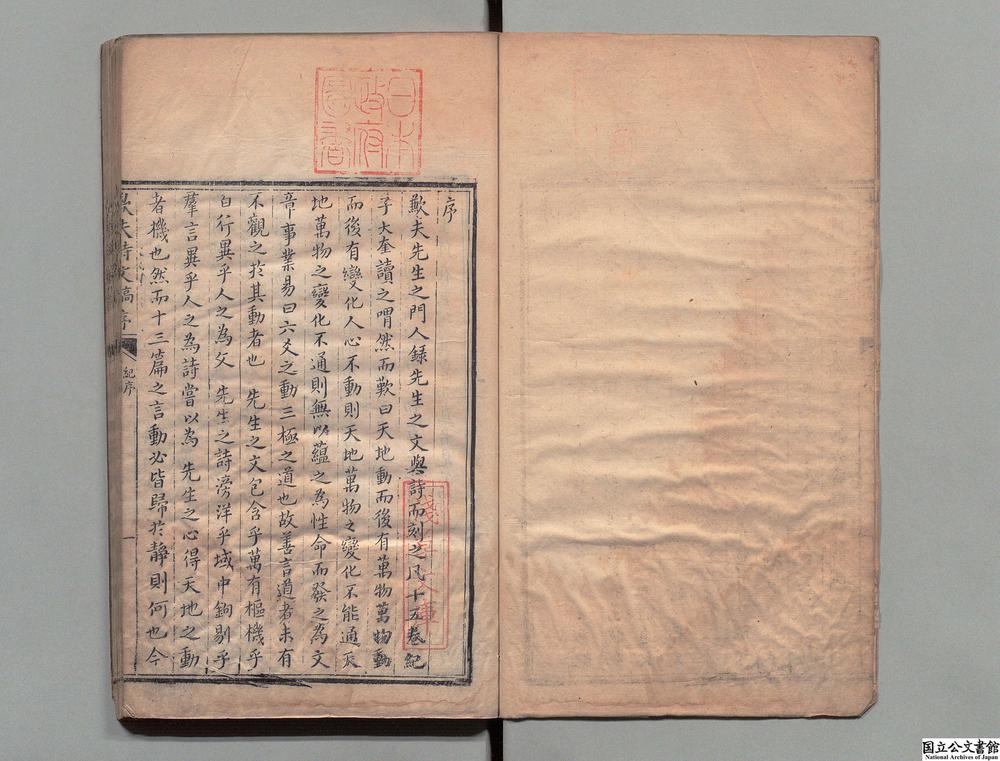 序
歎夫先生之門人録先生之文與詩而刻之凡十五卷紀
子大奎讀之喟然而歎曰天地動而後有萬物萬物動
而後有變化人心不動則天地萬物之變化不能通天
地萬物之變化不通則無以蘊之為性命而發之為文
章事業易曰六爻之動三極之道也故善言道者未有
不觀之於其動者也 先生之文包含乎萬有樞機乎
百行異乎人之為文 先生之詩滂洋乎域中鉤剔乎
羣言異乎人之為詩嘗以為 先生之心得天地之動
者機也然而十三篇之言動必皆歸於静則何也今
夫詩文稿序
紀序
一
日本
政府
圖書
淺草文庫
国立公文書館
National Archives of Japan